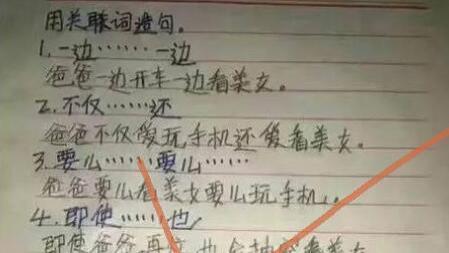 用关联词造句。
1.一边……一边
爸爸一边开车一边看美女。
2.不仅……还
爸爸不仅爱玩手机还爱看美女。
3.要么……要么……
爸爸要么看美女要么玩手机。
4.即使……也
即使爸爸再 也会抽 看美女